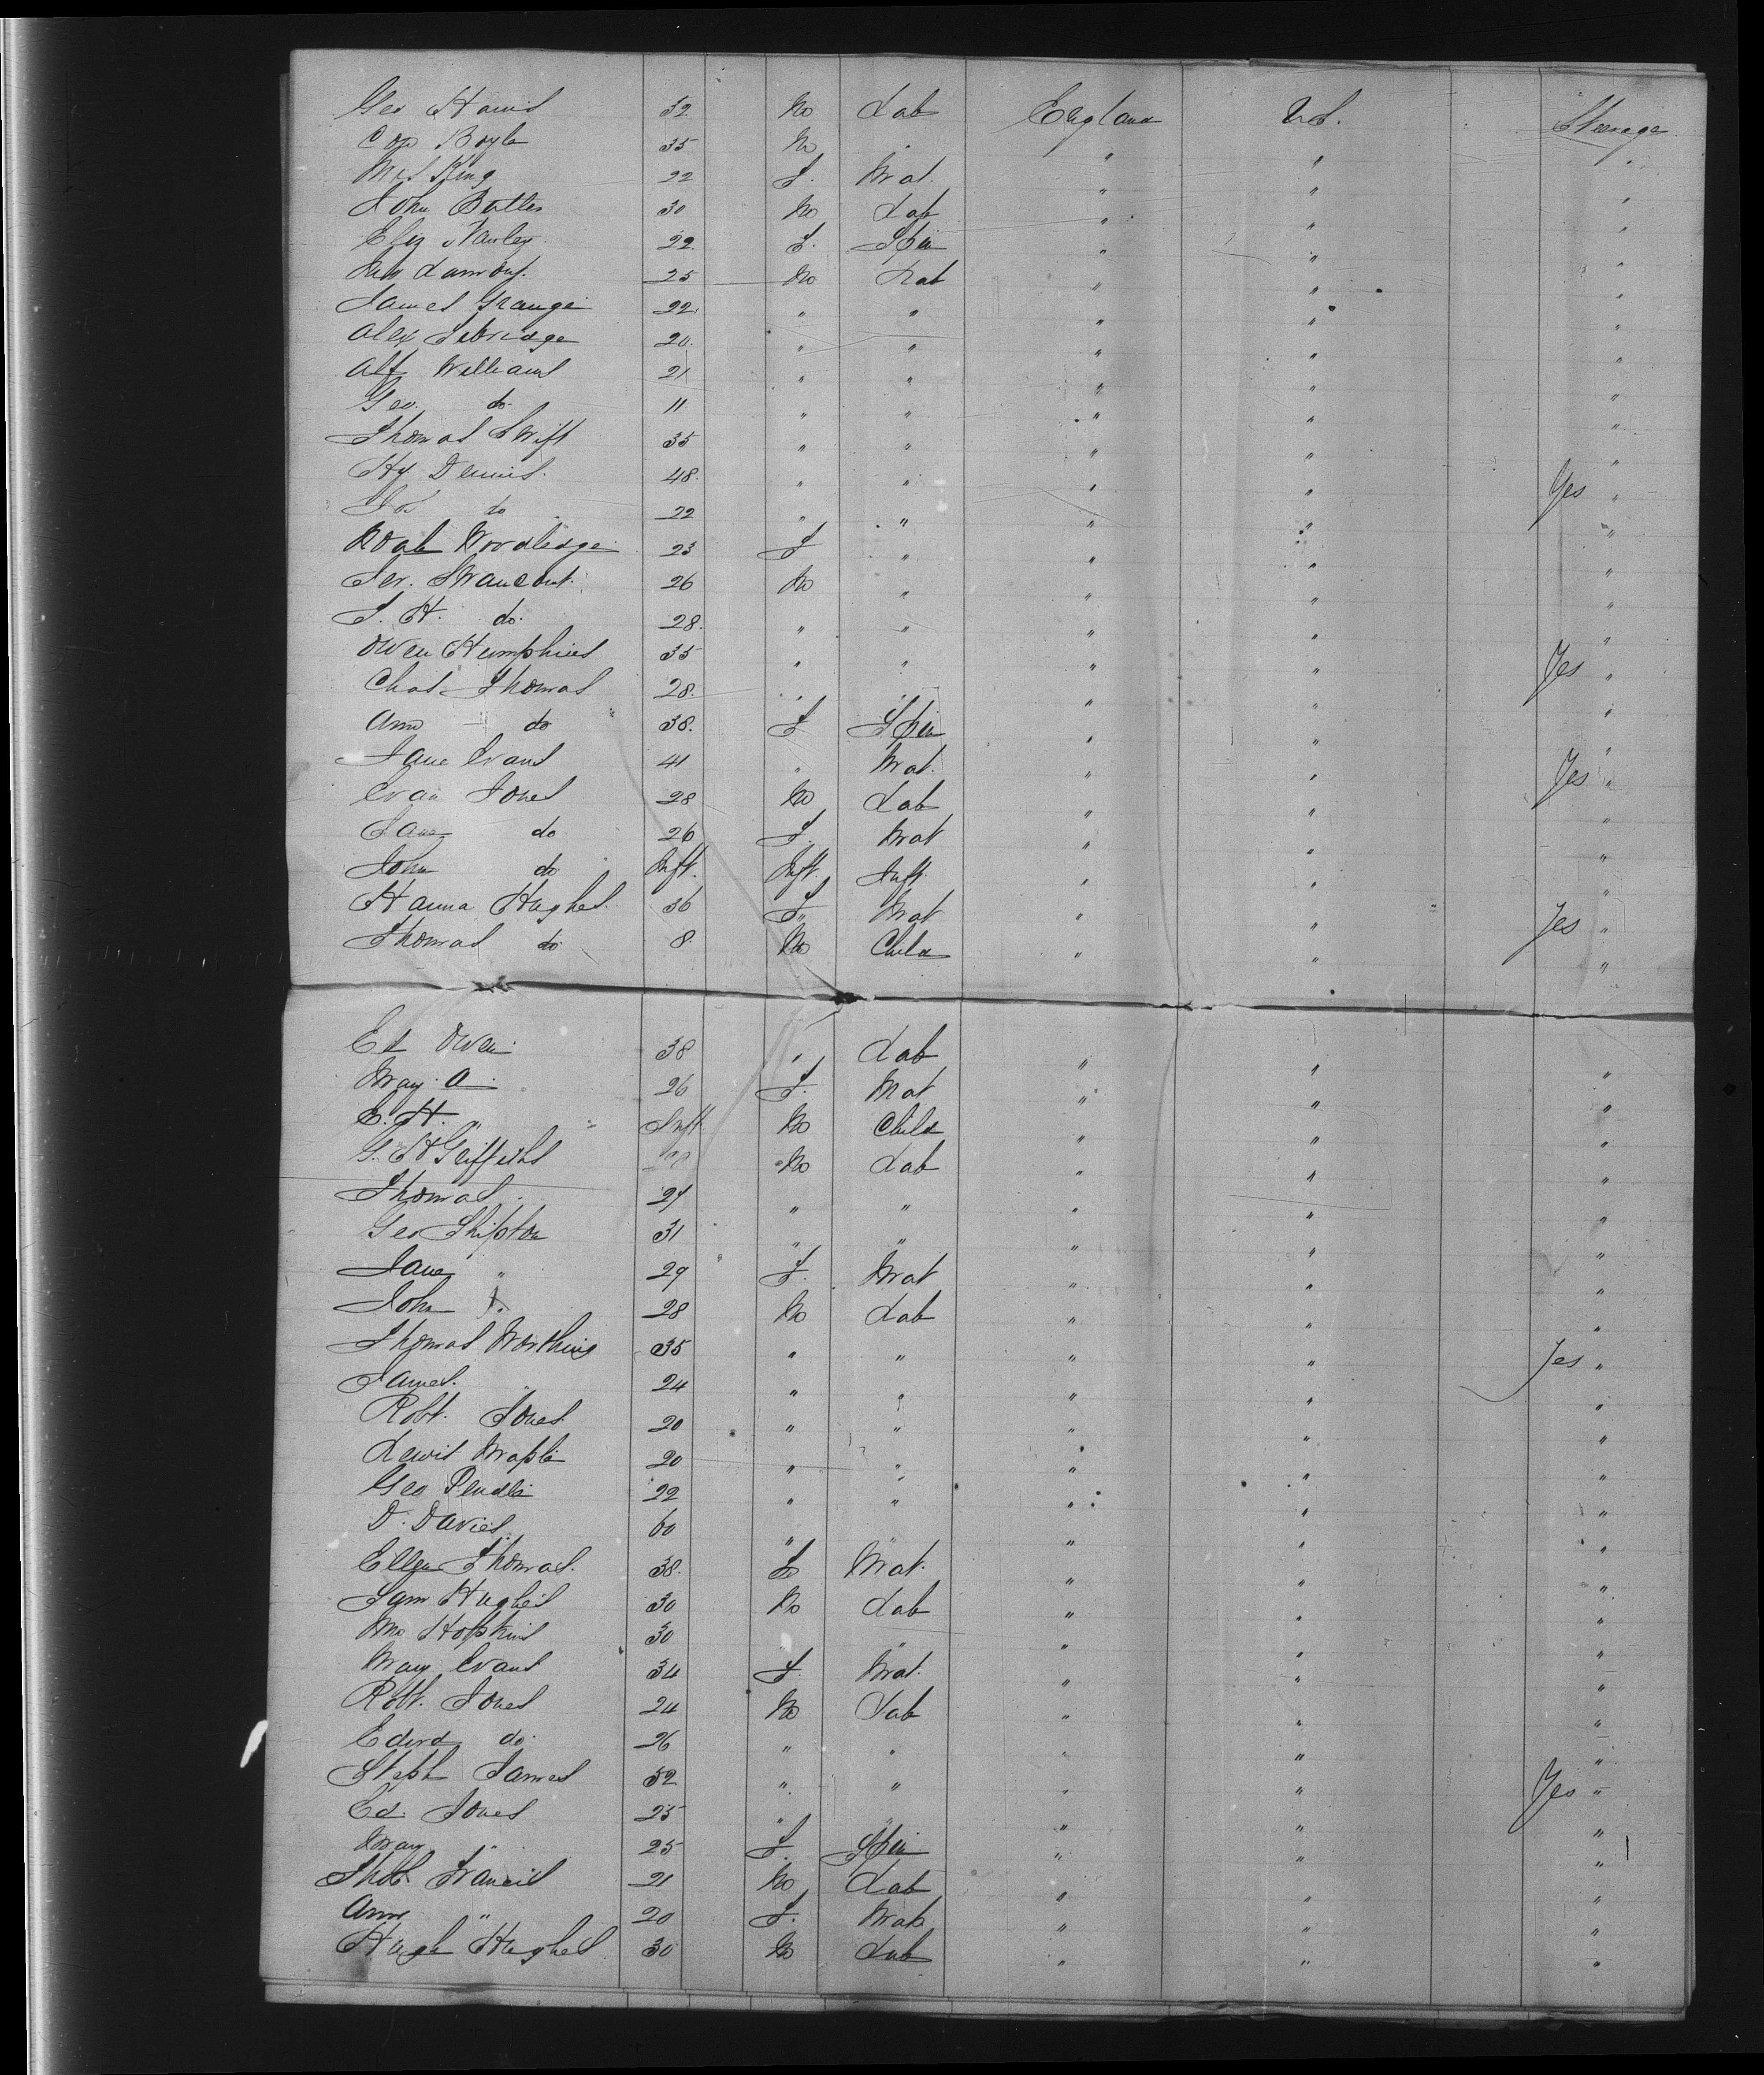 Geo Harris 32 M Lab England U.S. Steerage
Cop Boyle 35 M " " " "
Mrs King 22 F. Mat. " " "
John Butler 30 M Lab " " "
Eliz Stanley 22. F. Spin " " "
25 M Lab " " "
James Grange 22. " " " " "
Alex 20. " " " " "
Alf Williams 21 " " " " "
Geo. do. 11 " " " " "
Thomas Swift 35 " " " " "
Hy Dennis. 48. " " " " Yes "
Jos do 22 " " " " "
Noah Woodledge 23 F " " " "
26 M " " " "
S. H. do. 28. " " " " "
Owen Humphries 35 " " " " Yes "
Chas Thomas 28. " " " " "
Ann do 38. F Spin " " "
Jane Evans 41 " Mat. " " Yes "
Evan Jones 28 M Lab " " "
Jane do 26 F. Mat " " "
John do Inft. Inft. Inft. " " "
Hanna Hughes. 36 F Mat " " Yes "
Thomas do 8. M Child " " "
Ed Owen 38 " Lab " " "
Mary A. 26 F. Mat " " "
E. H. " Inft M Child " " "
G. H Griffiths M Lab " " "
Thomas " 24 " " " " "
Geo Shipton 31 " " " " "
Jane " 29 F. Mat " " "
John 28 M Lab " " "
Thomas Worthing 35 " " " " Yes "
James. " 24 " " " " "
Robt. Jones 20 " " " " "
Lewis Maple 20 " " " " "
Geo 22 " " " " "
D. Davies 60 " " " " "
Ellen Thomas. 38. F Mat. " " "
Sam Hughes 30 M Lab " " "
Wm Hopkins 30 " " " " "
Mary Evans 34 F. Mat. " " "
Robt. Jones 24 M Lab " " "
Edwd do. 26 " " " " "
Steph James 32 " " " " Yes "
Ed. Jones 25 " " " " "
Mary " 25 F. Spin " " "
Thos Francis 21 M Lab " " "
Ann " 20 F. Mat " " "
Hugh Hughes 30 M Lab " " "